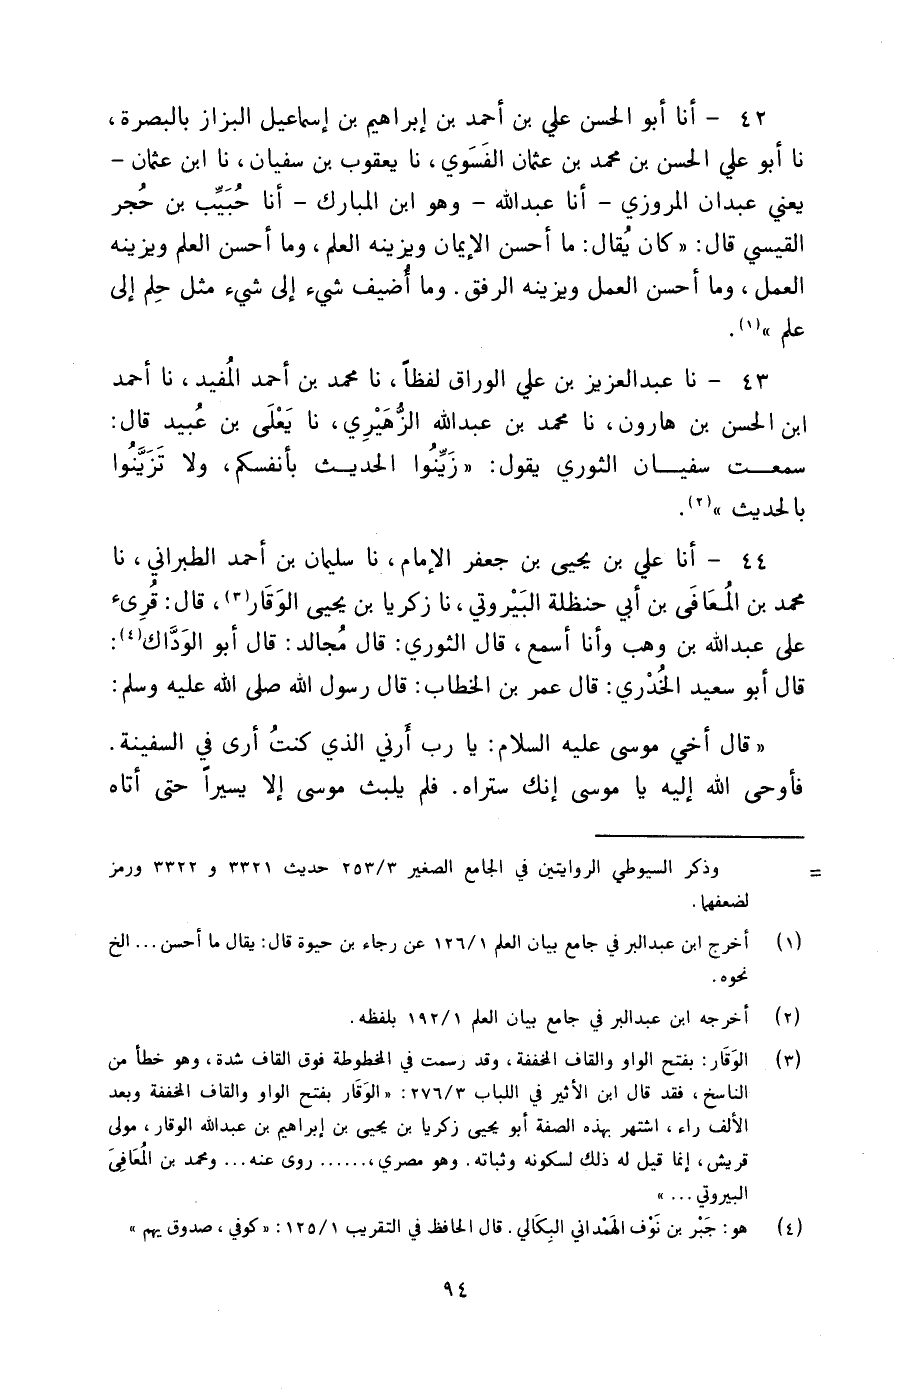 ٤٢ - أنا أبو الحسن علي بن أحمد بن إبراهيم بن إسماعيل البزاز بالبصرة ،
نا أبو علي الحسن بن محمد بن عثمان الفَسَوي ، نا يعقوب بن سفيان ، نا ابن عثمان -
يعني عبدان المروزي - أنا عبدالله - وهو ابن المبارك - أنا حُبَيِّب بن حُجر
القيسي قال: « كان يُقال: ما أحسن الإيمان ويزينه العلم ، وما أحسن العلم ويزينه
العمل ، وما أحسن العمل ويزينه الرفق . وما أُضيف شيء إلى شيء مثل حِلم إلى
علم »(١).
٤٣ - نا عبدالعزيز بن علي الوراق لفظاً ، نا محمد بن أحمد المُفيد ، نا أحمد
ابن الحسن بن هارون ، نا محمد بن عبدالله الزُّهَيْري ، نا يَعْلَى بن عُبيد قال:
سمعت سفيان الثوري يقول: « زَيِّنُوا الحديث بأنفسكم ، ولا تَزَيَّنُوا
بالحديث »(٢).
٤٤ - أنا علي بن يحيى بن جعفر الإمام ، نا سليمان بن أحمد الطبراني ، نا
محمد بن المُعَافَى بن أبي حنظلة البَيْروتي ، نا زكريا بن يحيى الوَقَار(٣) ، قال: قُرِىء
على عبدالله بن وهب وأنا أسمع ، قال الثوري: قال مُجالد: قال أبو الوَدَّاك(٤):
قال أبو سعيد الخُدْري: قال عمر بن الخطاب: قال رسول الله صلى الله عليه وسلم:
« قال أخي موسى عليه السلام: يا رب أَرني الذي كنتُ أرى في السفينة .
فأوحى الله إليه يا موسى إنك ستراه. فلم يلبث موسى إلا يسيراً حتى أتاه
= وذكر السيوطي الروايتين في الجامع الصغير ٢٥٣/٣ حديث ٣٣٢١ و ٣٣٢٢ ورمز
لضعفهما .
(١) أخرج ابن عبدالبر في جامع بيان العلم ١٢٦/١ عن رجاء بن حيوة قال: يقال ما أحسن ... الخ
نحوه .
(٢) أخرجه ابن عبدالبر في جامع بيان العلم ١٩٢/١ بلفظه .
(٣) الوَقَار: بفتح الواو والقاف المخففة ، وقد رسمت في المخطوطة فوق القاف شدة ، وهو خطأ من
الناسخ ، فقد قال ابن الأثير في اللباب ٢٧٦/٣: « الوَقَار بفتح الواو والقاف المخففة وبعد
الألف راء ، اشتهر بهذه الصفة أبو يحيى زكريا بن يحيى بن إبراهيم بن عبدالله الوقار ، مولى
قريش ، إنما قيل له ذلك لسكونه وثباته. وهو مصري ، ...... روى عنه ... ومحمد بن المُعَافِىَ
البيروتي ... »
(٤) هو: جَبْر بن نَوْف الهَمْداني البِكَالي . قال الحافظ في التقريب ١٢٥/١: « كوفي ، صدوق يهم »
٩٤